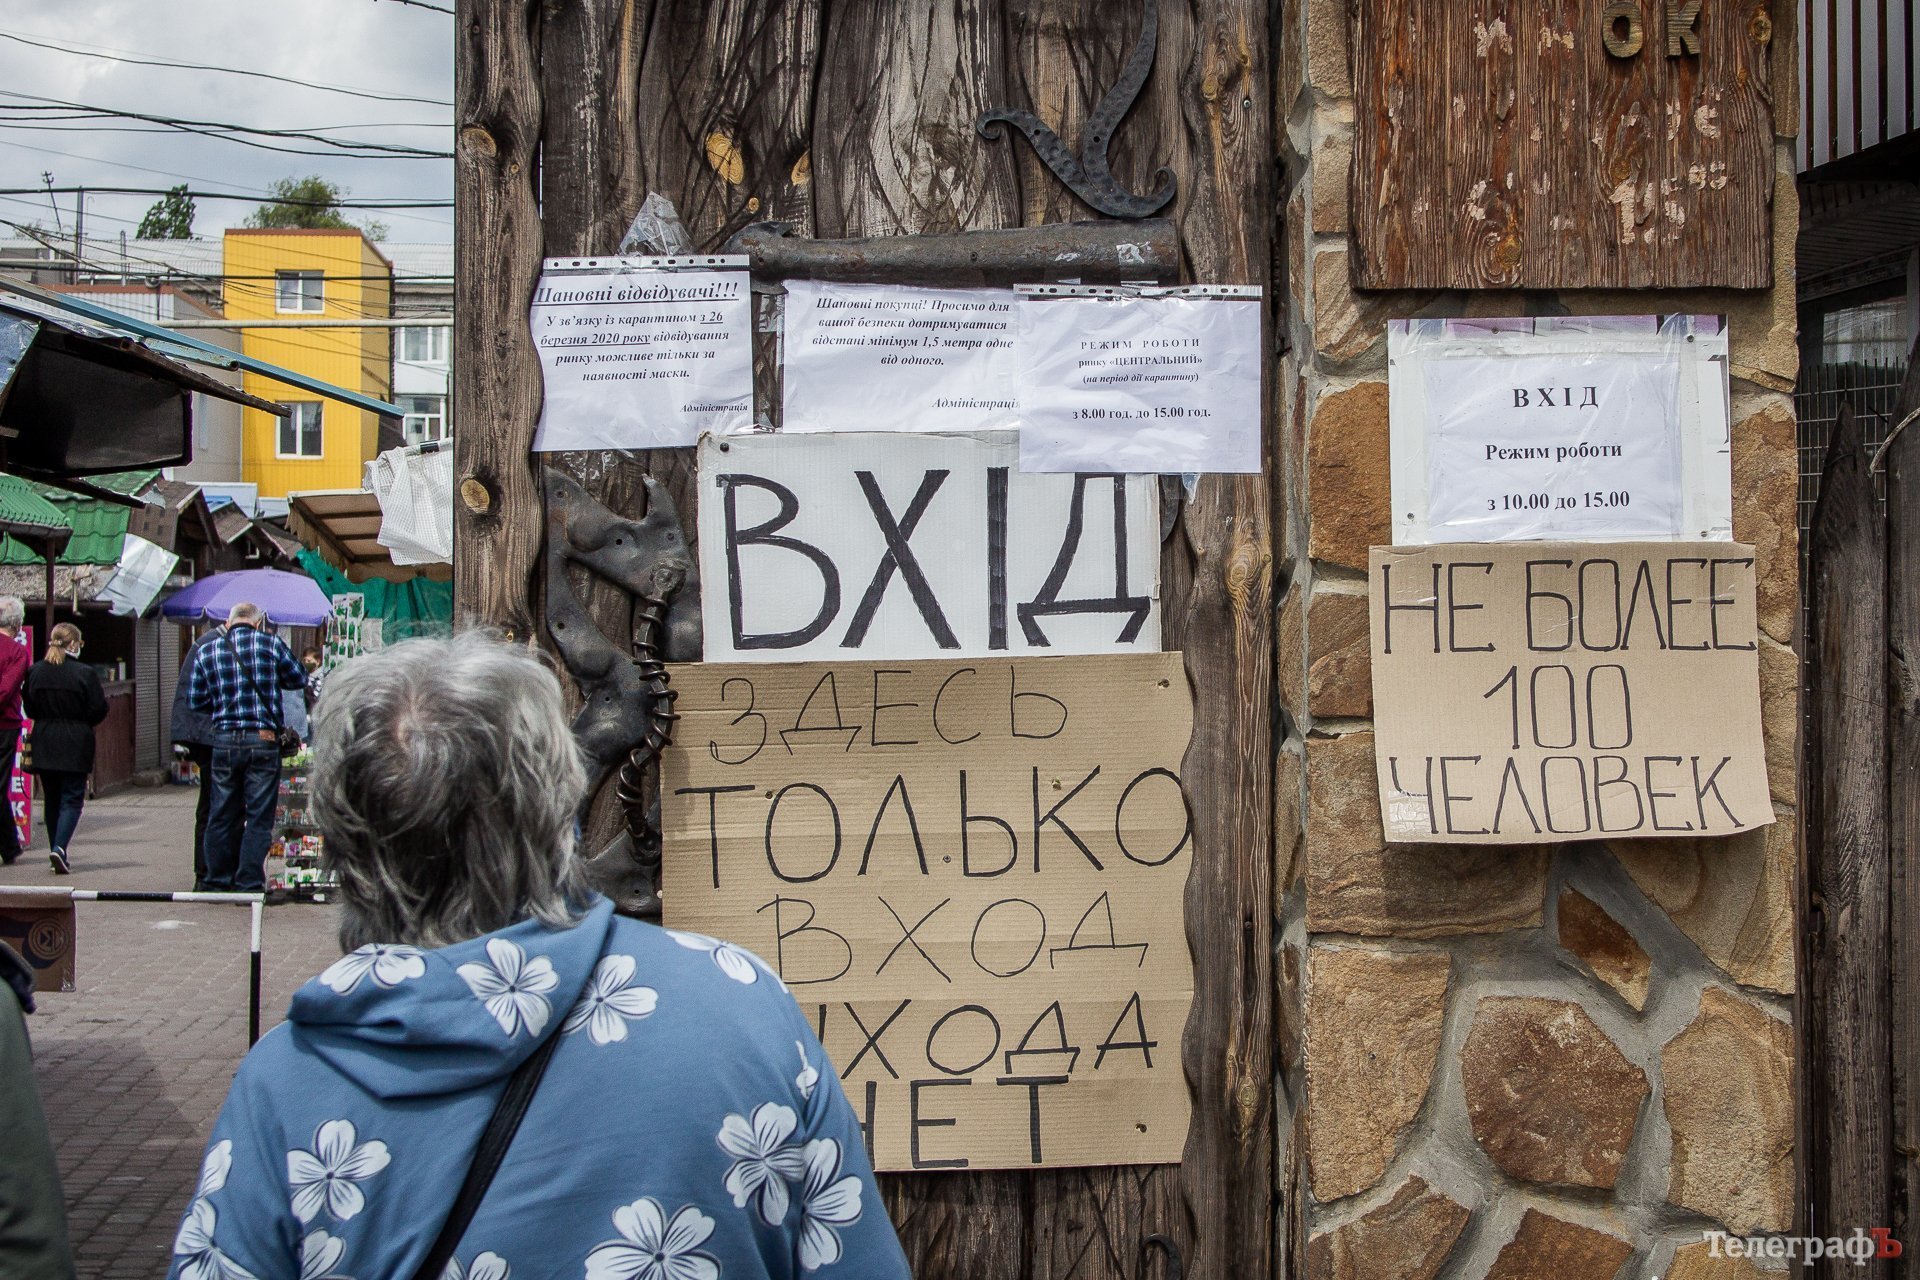 Шановні відвідувачі!!!
У зв’язку із карантином з 26
березня 2020 року відвідування
ринку можливе тільки за
наявності маски.
Адміністрація
Шановні покупці! Просимо для
вашої безпеки дотримуватися
відстані мінімум 1,5 метра одне
від одного.
Адміністрація
РЕЖИМ РОБОТИ
ринку «ЦЕНТРАЛЬНИЙ»
(на період дії карантину)
з 8.00 год. до 15.00 год.
ВХІД
ЗДЕСЬ
ТОЛЬКО
ВХОД
ЫХОДА
НЕТ.
ОК
ВХІД
Режим роботи
з 10.00 до 15.00
НЕ БОЛЕЕ
100
ЧЕЛОВЕК
ТелеграфЪ